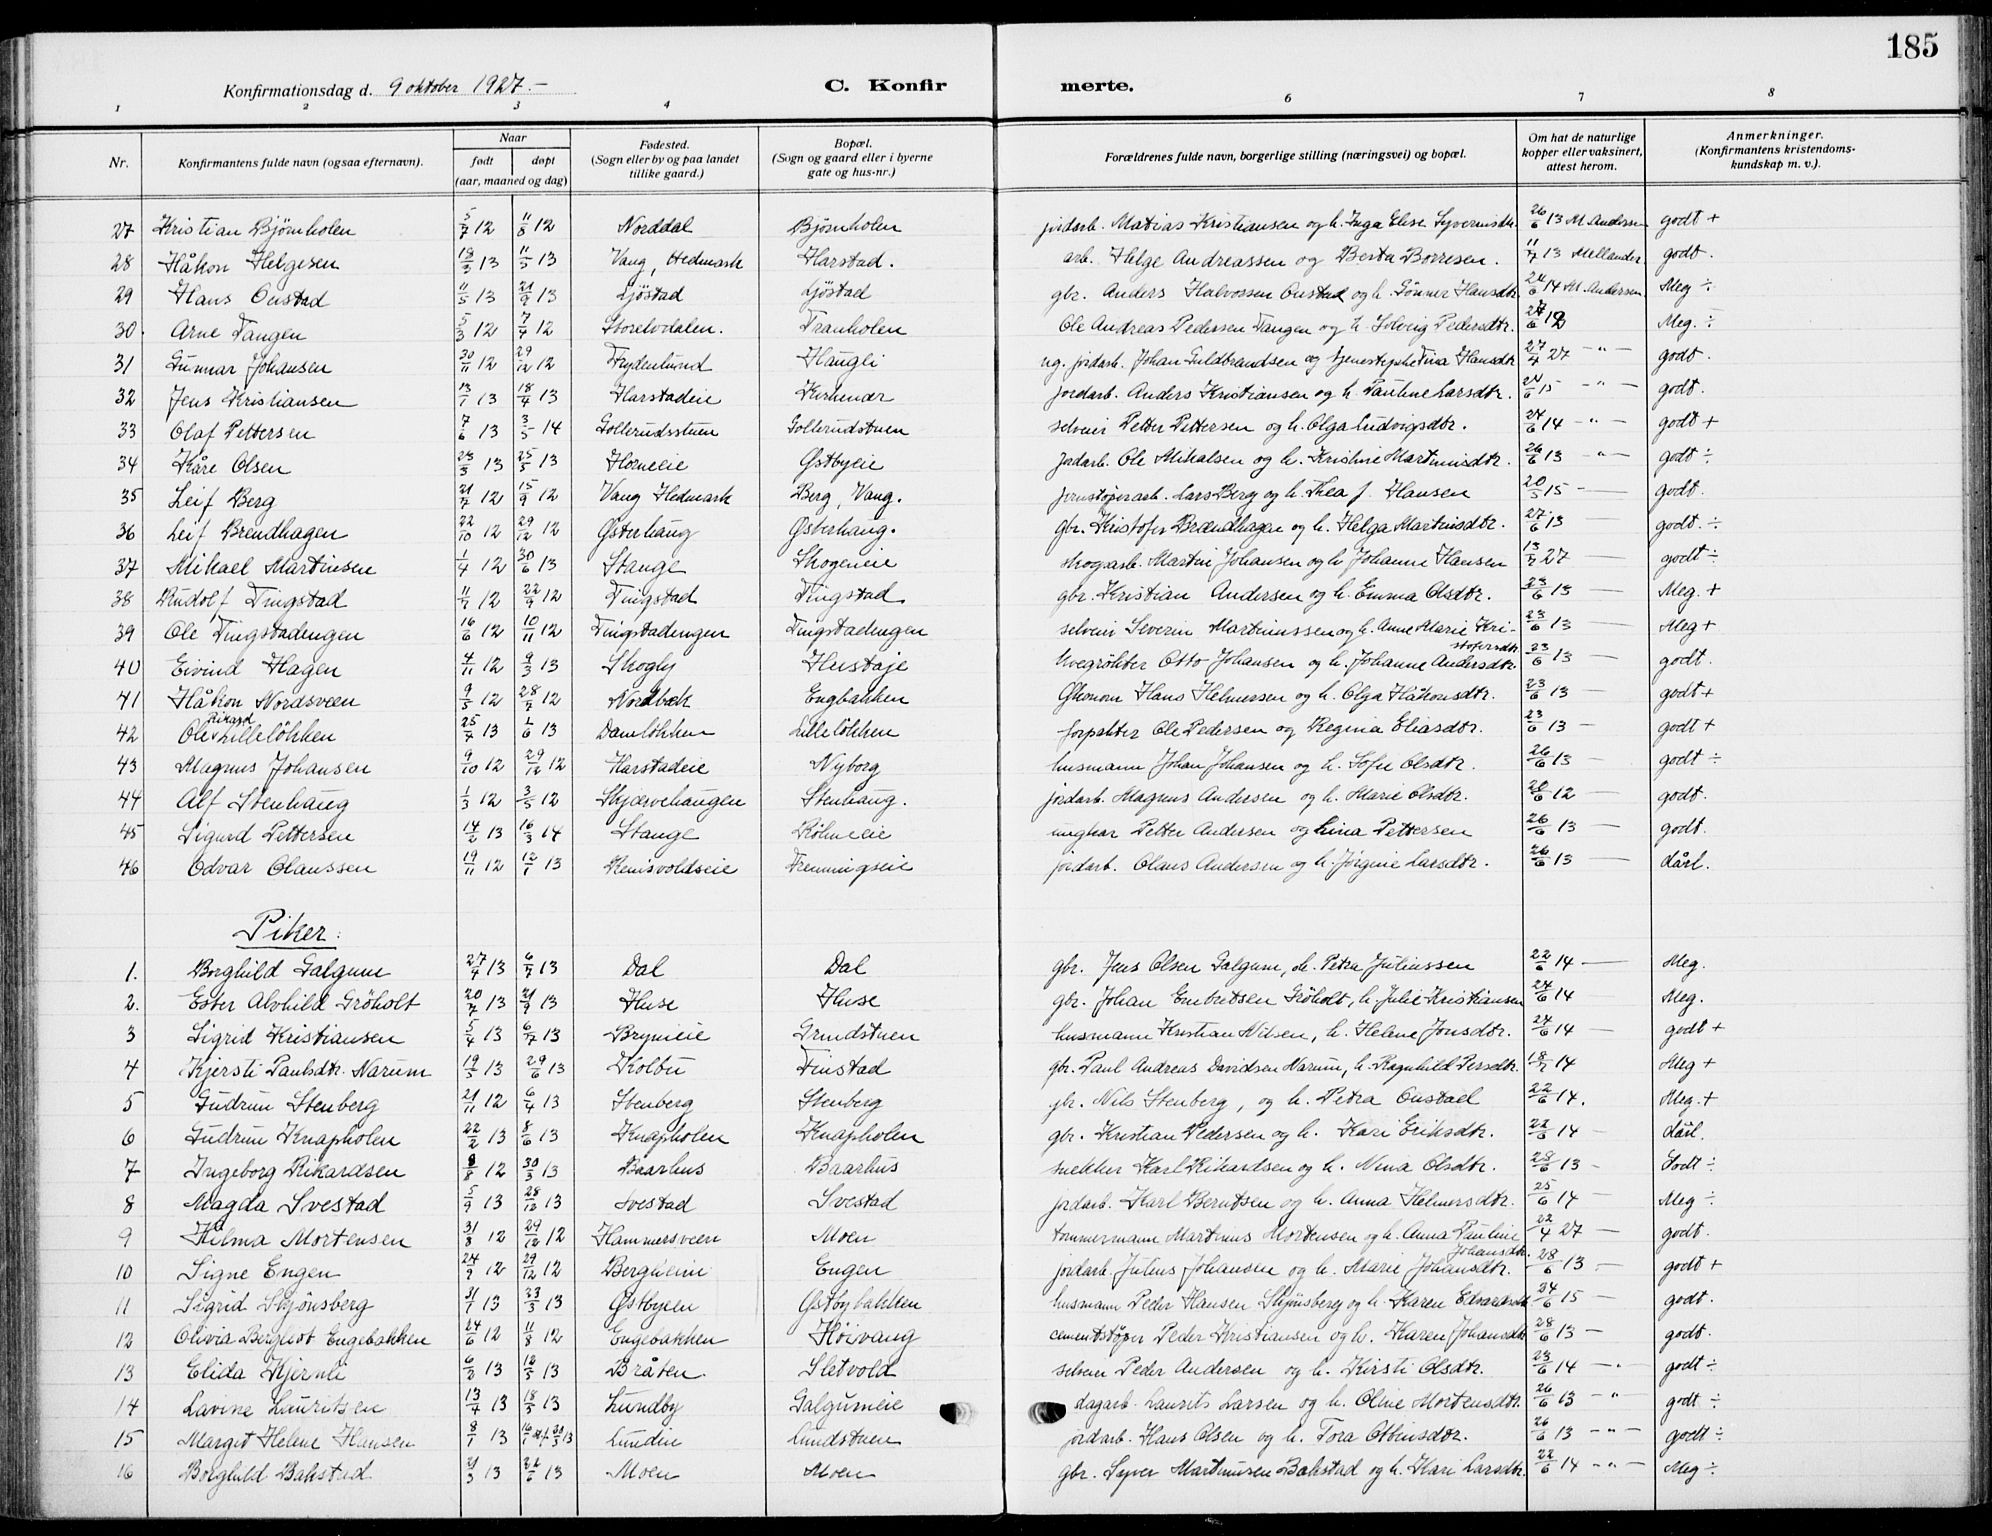 185
Konfirmationsdag d. 9 oktober 1927.— C. Konfirmerte.
1 2 3 4 6 7 8
Nr. Konfirmantens fulde navn (ogsaa efternavn). Naar født døpt (aar, maaned og dag) Fødested. (Sogn eller by og paa landet tillike gaard.) Bopæl. (Sogn og gaard eller i byerne gate og hus-nr.) Forældrenes fulde navn, borgerlige stilling (næringsvei) og bopæl. Om hat de naturlige kopper eller vaksinert, attest herom. Anmerkninger. (Konfirmantens kristendomskundskap m. v.).
27 Kristian Bjørnholen 5/7 12 11/8 12 Norddal Bjørnholen jordarb. Matias Kristiansen og h. Inga Elise Syverinsdtr. 26/6 13 M. Andersen godt +
28 Håkon Helgesen 13/3 13 11/5 13 Vang, Hedmark Harstad. arb. Helge Andreassen og Berta Borresen. 11/7 13 Mellander. godt.
29 Hans Onstad 11/5 13 21/9 13 Ljöstad Ljöstad gbr. Anders Halvorsen Onstad og h. Gönner Hansdtr. 24/6 14 M. Andersen. Meg ÷
30. Arne Tangen 5/3 12 7/4 12 Storelvdalen. Tranholen Ole Andreas Pedersen Tangen og h. Solveig Pedersdtr. 24/6 12 Meg. ÷
31 Gunnar Johansen 30/11 12 29/12 12 Frydenlund Haugli ug. jordarb. Johan Guldbrandsen og tjenestepike Tina Hansdtr 27/4 27 —"— godt.
32 Jens Kristiansen 13/1 13 18/4 13 Harstadeie Kirkenær jordarb. Anders Kristiansen og h. Pauline Larsdtr. 24/6 15 —"— godt.
33 Olaf Pettersen 7/6 13 3/5 14 Gollerudsstuen Gollerudstuen selveier Petter Pettersen og h. Olga Ludvigsdtr. 24/6 14 —"— godt +
34 Kåre Olsen 23/3 13 25/5 13 Horneeie Østbyeie Jordarb. Ole Mikalsen og h. Kristine Martinusdtr. 26/6 13 —"— godt ÷
35 Leif Berg 21/7 12 15/9 12 Vang Hedmark Berg, Vang. jernstøperarb. Lars Berg og h. Thea f. Hansen 20/5 15 — godt.
36 Leif Brendhagen 22/10 12 29/12 12 Østerhaug Østerhaug. gbr. Kristofer Brændhagen og h. Helga Martinsdtr. 27/6 13 godt. ÷
37 Mikael Martinsen 1/4 12 30/6 13 Stange Skogeneie skogsarb. Martin Johansen og h. Johanne Hansen 13/7 27 — godt ÷
38 Rudolf Tingstad 11/7 12 22/9 12 Tingstad Tingstad. gbr. Kristian Andersen og h. Emma Olsdtr. 23/6 13 — Meg. +
39 Ole Tingstadengen 16/6 12 10/11 12 Tingstadengen Tingstadengen selveier Severin Martinussen og h. Anne Marie Kristofersdtr 23/6 13 — Meg +
40 Eivind Hagen 4/11 12 9/3 13 Skogly Hustøje kvegrökter Otto Johansen og h. Johanne Andersdtr. 23/6 13 — godt.
41 Håkon Nordsveen 9/5 12 28/7 12 Nordbæk Engbakken Økonom Hans Helmersen og h. Olga Håkonsdtr. 23/6 13 — godt +
42 Ole Rikard Lilleløkken 25/7 13 1/6 13 Damløkken Lilleløkken forpakter Ole Pedersen og Regina Eliasdtr. 23/6 13 — godt +
43 Magnus Johansen 9/10 12 29/12 12 Harstadeie Nyborg husmann Johan Johansen og h. Sofie Olsdtr. 26/6 13 — godt ÷
44 Alf Stenhaug 1/3 12 3/5 12 Skjærvehaugen Stenhaug. jordarb. Magnus Andersen og h. Marie Olsdtr. 20/6 12 — godt.
45 Sigurd Pettersen 14/2 13 16/3 14 Stange ungkar Petter Andersen og Lina Pettersen 26/6 13 — godt.
46 Odvar Olaussen 19/11 12 12/1 13 Remsvoldseie Fremmingseie jordarb. Olaus Andersen og h. Jørgine Larsdtr. 26/6 13 — dårl.
Piker:
1. Borghild Galgum 27/4 13 6/7 13 Dal Dal gbr. Jens Olsen Galgum, h. Petra Juliussen 22/6 14 — Meg.
2. Ester Alvhild Gröholt 20/7 13 21/9 13 Huse Huse gbr. Johan Embretsen Gröholt, h. Julie Kristiansen 24/6 14 Meg.
3 Sigrid Kristiansen 5/4 13 6/7 13 Brynieie Grundstuen husmann Kristian Nilsen, h. Helene Jonsdtr. 24/6 14 — godt +
4 Kjersti Paulsdtr. Narum 19/5 13 29/6 13 Kolbu Finstad gbr. Paul Andreas Davidsen Narum, h. Ragnhild Persdtr. 18/7 14 Meg +
5 Gudrun Stenberg 21/11 12 6/4 13 Stenberg Stenberg gbr. Nils Stenberg, og h. Petra Onstad 22/6 14. Meg. +
6 Gudrun Knapholen 22/2 13 8/6 13 Knapholen Knapholen gbr. Kristian Pedersen og h. Kari Eriksdtr. 22/6 14 — dårl.
7 Ingeborg Rikardsen 8/8 12 30/3 13 Baarhus Baarhus snekker Karl Rikardsen og h. Nina Olsdtr. 28/6 13 — Godt ÷
8 Magda Svestad 5/9 13 28/12 13 Svestad Svestad jordarb. Karl Berntsen og h. Anna Helmersdtr. 25/6 14 — Meg ÷
9 Hilma Mortensen 31/8 12 29/12 12 Hammersveen Moen tømmermann Martinus Mortensen og h. Anna Pauline Johansdtr. 22/4 27 — godt.
10 Signe Engen 24/9 12 29/12 12 Bergheim Engen jordarb. Julius Johansen og h. Marie Johansdtr. 28/6 13 — godt +
11 Sigrid Skjönsberg 31/1 13 23/3 13 Østbyeien Østbybakken husmann Peder Hansen Skjönsberg og h. Karen Edvardsdtr 24/6 15 — godt.
12 Olivia Bergljot Engebakken 24/6 12 11/8 12 Engebakken Høivang cementstøper Peder Kristiansen og h. Karen Johansdtr 28/6 13 — godt.
13 Elida Kjernli 6/2 13 12/5 13 Bråten. Sletvold selveier Peder Andersen og h. Kirsti Olsdtr. 23/6 14 —"— godt ÷
14 Lavine Lauritsen 13/4 13 18/5 13 Lundby Galgumeie dagarb. Laurits Larsen og h. Oline Mortensdtr. 26/6 13 —"— godt ÷
15 Margit Helene Hansen 8/1 13 Lundstuen jordarb. Hans Olsen og h. Tora Ottinsdtr. 26/6 13 —"— godt ÷
16 Borghild Bakstad 21/3 13 22/6 13 Moen Moen gbr. Syver Martinusen Bakstad og h. Kari Larsdtr. 22/6 14 —"— Meg ÷